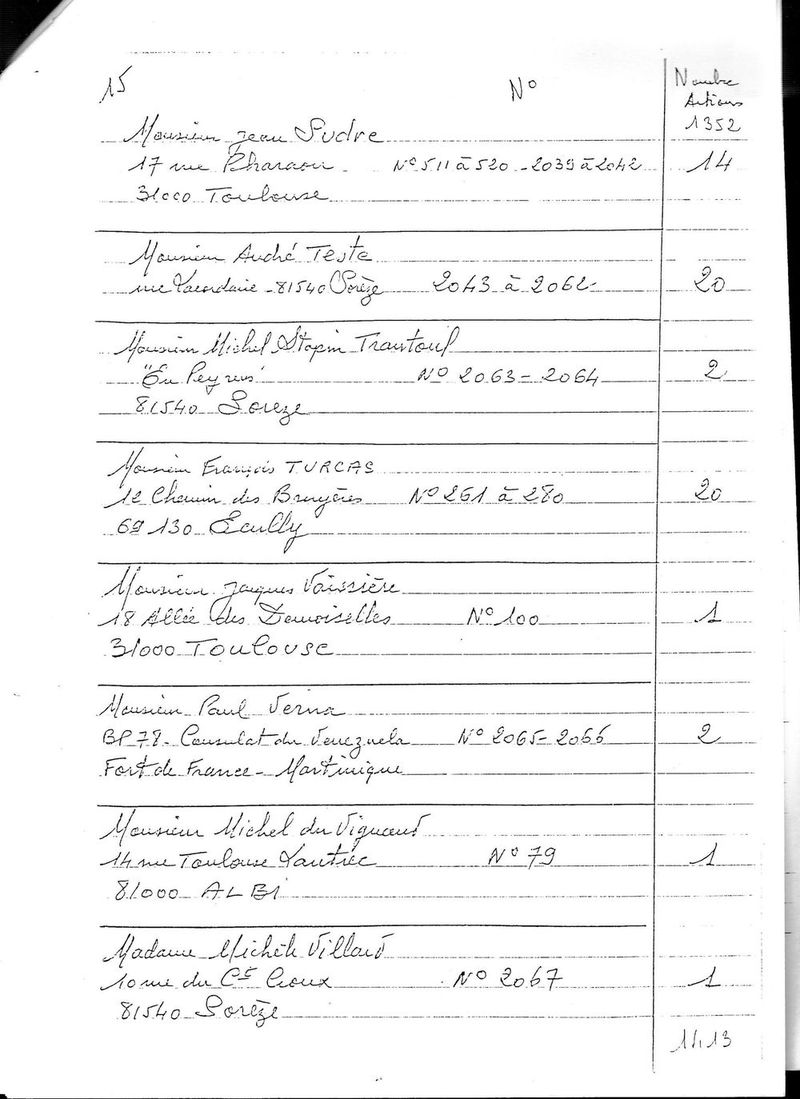 15
N°
Nombre
Actions
1352
Monsieur Jean Sudre
17 rue Pharaon N° 511 à 520 - 2039 à 2042 14
31000 Toulouse
Monsieur André Teste
rue Lacordaire - 81540 Sorèze 2043 à 2062 20
Monsieur Michel Stopin Trantoul
"En Peyrens" N° 2063 - 2064 2
81540 Sorèze
Monsieur François TURCAS
12 Chemin des Bruyères N° 261 à 280 20
69 130 Écully
Monsieur Jacques Vaissière
18 Allée des Demoiselles N° 100 1
31000 Toulouse
Monsieur Paul Verna
BP 78 - Consulat du Venezuela N° 2065 - 2066 2
Fort de France - Martinique
Monsieur Michel du
14 rue Toulouse Lautrec N° 79 1
81000 ALBI
Madame Michèle Villard
10 rue du Ct Croux N° 2067 1
81540 Sorèze
1413